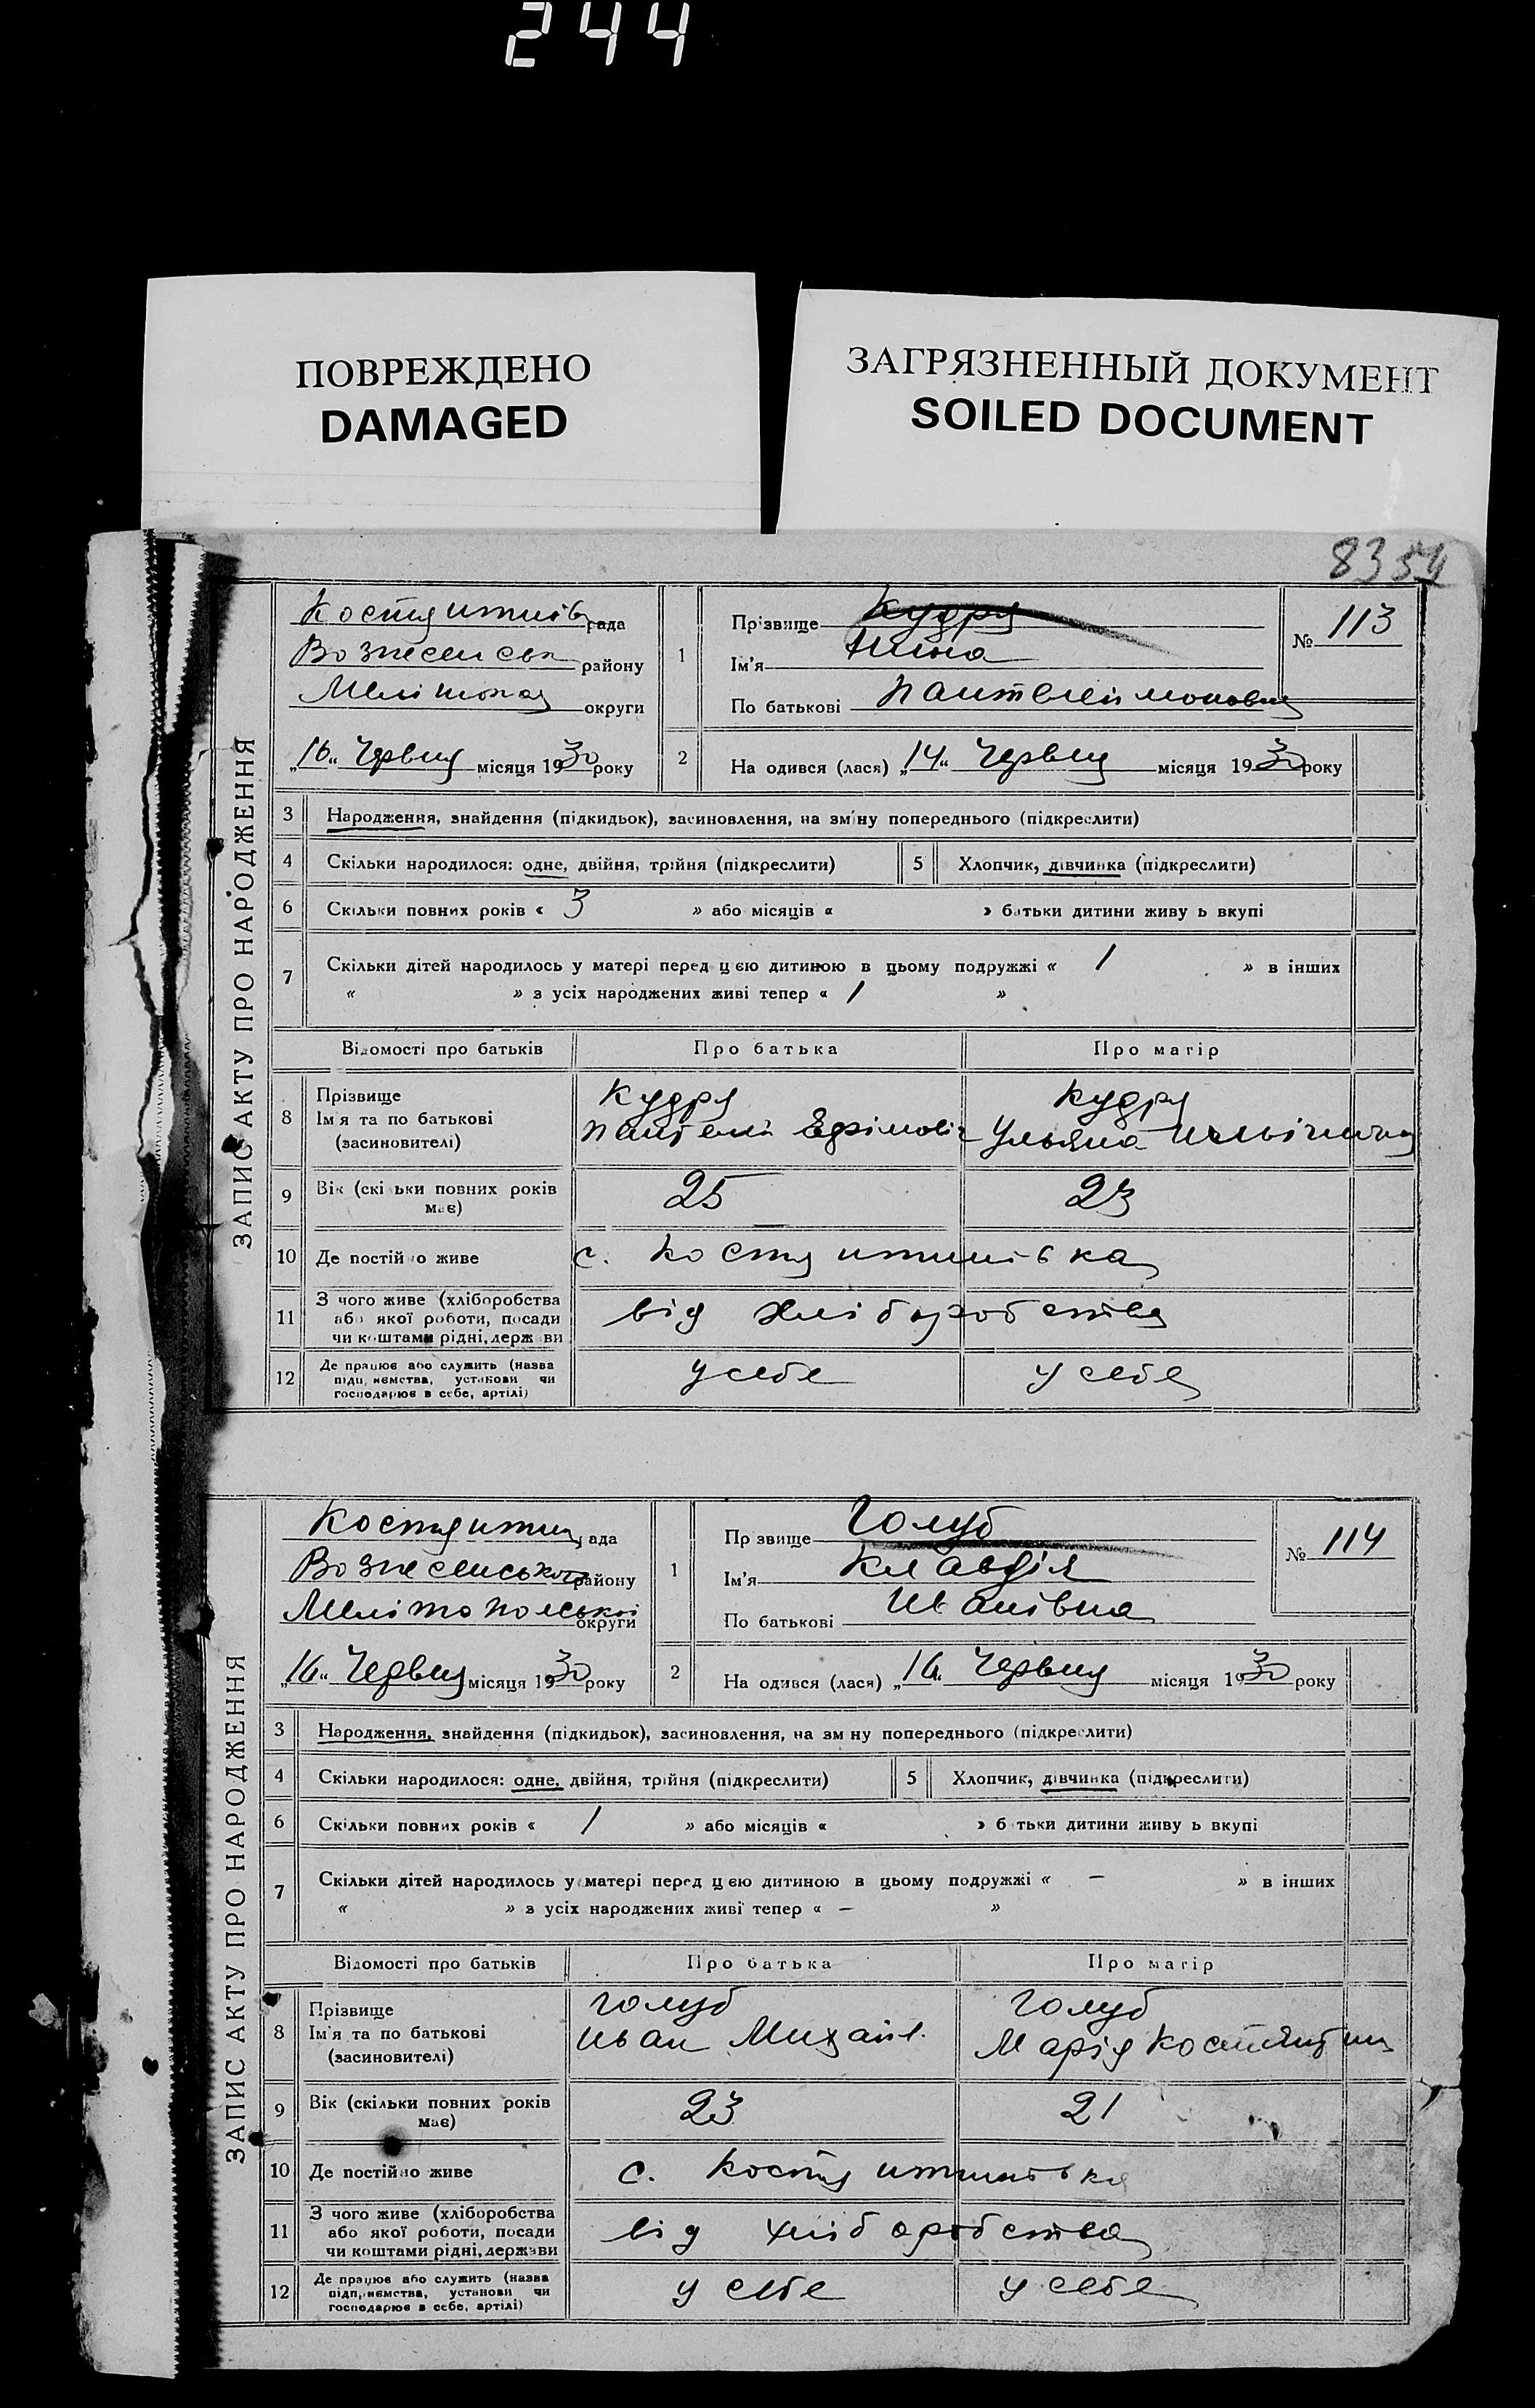 244
ПОВРЕЖДЕНО
DAMAGED
ЗАГРЯЗНЕННЫЙ ДОКУМЕНТ
SOILED DOCUMENT
8354
ЗАПИС АКТУ ПРО НАРОДЖЕННЯ
рада
району
Меліт округи
„16“ Червня місяця 1930 року
1
Прізвище Кудря
Ім'я Нина
По батькові
№ 113
2
На одився (лася) „14“ Червня місяця 1930 року
3 Народження, знайдення (підкидьок), засиновлення, на зміну попереднього (підкреслити)
4 Скільки народилося: одне, двійня, трійня (підкреслити) 5 Хлопчик, дівчинка (підкреслити)
6 Скільки повних років « 3 » або місяців « » батьки дитини живу ь вкупі
7 Скільки дітей народилось у матері перед цєю дитиною в цьому подружжі « 1 » в інших
« » з усіх народжених живі тепер « 1 »
Відомості про батьків Про батька Про матір
8 Прізвище
Ім'я та по батькові
(засиновителі)
Кудря
Кудря
Ульяна
9 Вік (скі ьки повних років
має)
25 23
10 Де постій о живе с. Костянтинівка
11 З чого живе (хліборобства
або якої роботи, посади
чи коштами рідні, держ ви
від хліборобства
12 Де працює або служить (назва
підп, иємства, установи чи
господарює в себе, артілі)
у себе у себе
ЗАПИС АКТУ ПРО НАРОДЖЕННЯ
Костянтин ада
Вознесенського району
Мелітопольської округи
„16“ Червня місяця 1930 року
1
Пр звище Голуб
Ім'я Клавдія
По батькові Іванівна
№ 114
2
На одився (лася) „16“ Червня місяця 1930 року
3 Народження, знайдення (підкидьок), засиновлення, на зм ну попереднього (підкреслити)
4 Скільки народилося: одне, двійня, трійня (підкреслити) 5 Хлопчик, дівчинка (підкреслити)
6 Скільки повних років « 1 » або місяців « » б тьки дитини живу ь вкупі
7 Скільки дітей народилось у матері перед цєю дитиною в цьому подружжі « — » в інших
« » з усіх народжених живі тепер « — »
Відомості про батьків Про батька Про матір
8 Прізвище
Ім'я та по батькові
(засиновителі)
Голуб Голуб
Иван Михайл. Марія
9 Вік (скільки повних років
має)
23 21
10 Де постійно живе с. Костянтинівка
11 З чого живе (хліборобства
або якої роботи, посади
чи коштами рідні, держави
від хліборобства
12 Де працює або служить (назва
підприємства, установи чи
господарює в себе, артілі)
у себе у себе